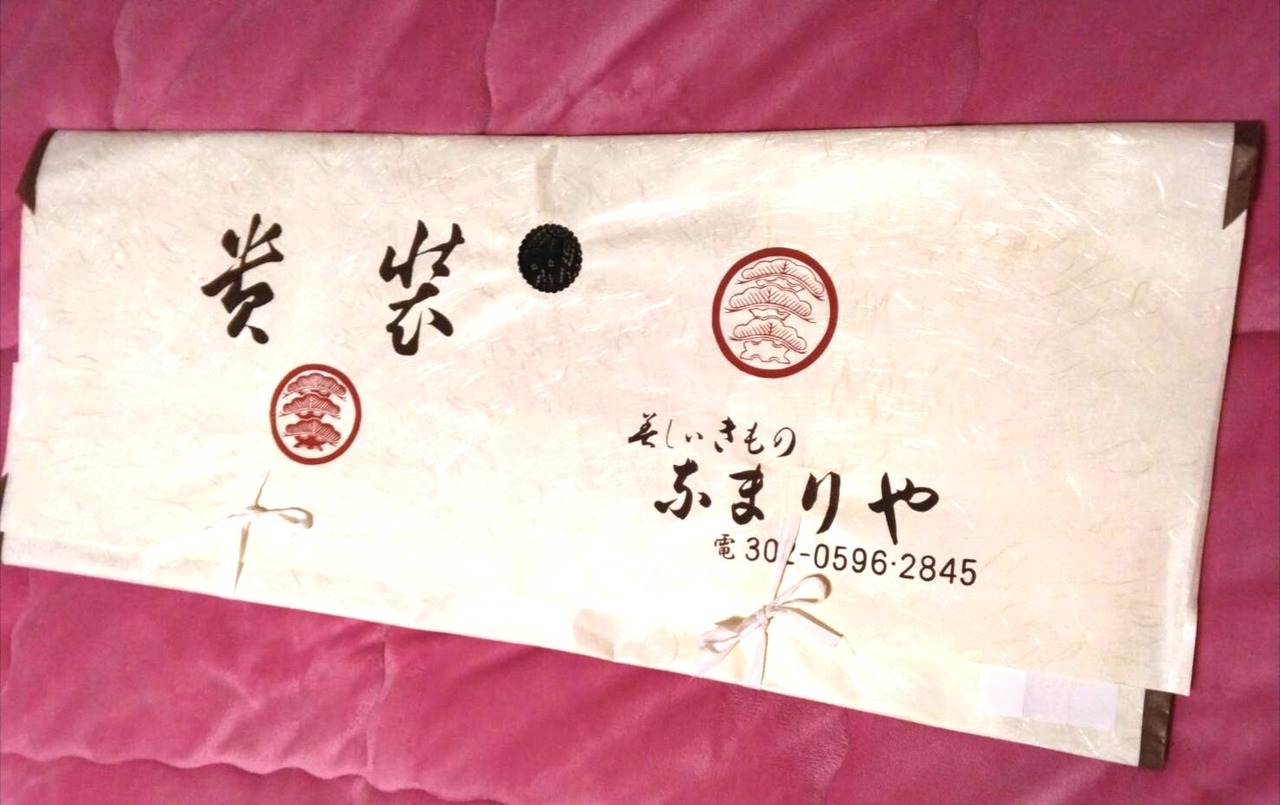 貴装
美しいきもの
なまりや
電302-0596・2845